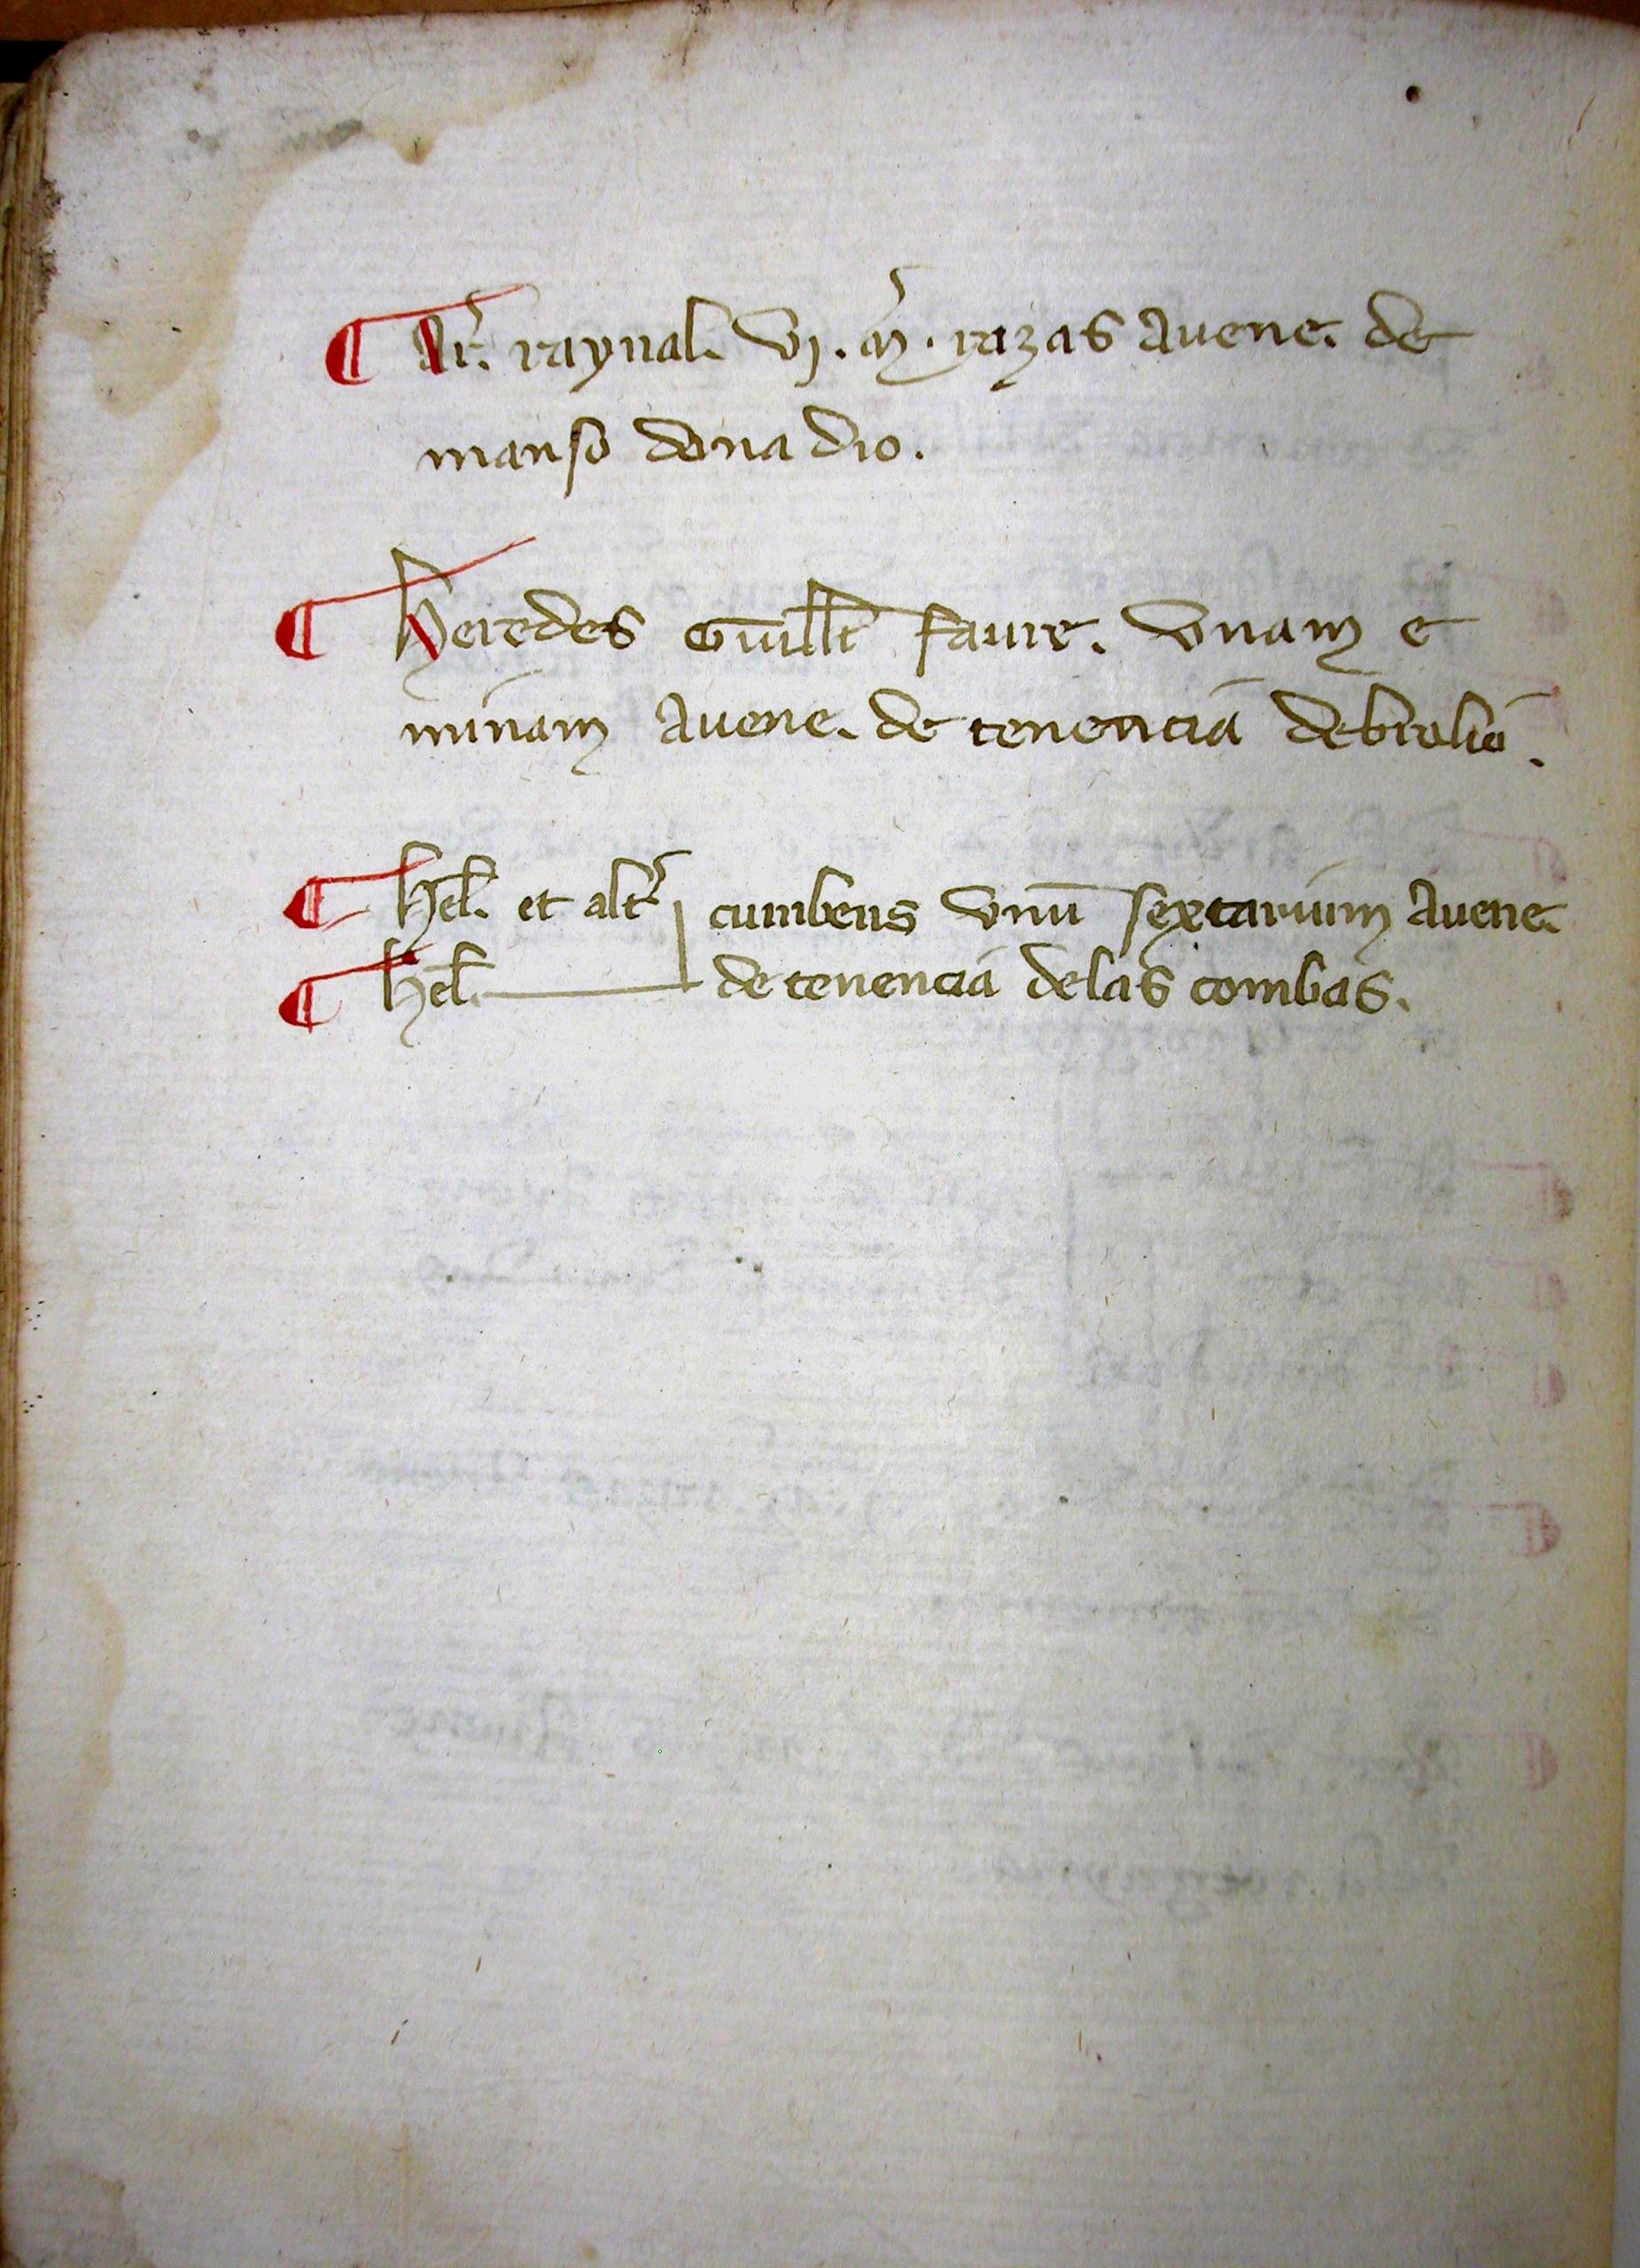 ¶ Ar. raynal. vj. m. razas avene. de
manso dona dio.
¶ Heredes Guill't faure. vnam e
minam avene. de tenencia debrolio.
¶ Hel. et alt' cumbens vnū sextarium avene.
¶ Hel. de tenencia delas combas.